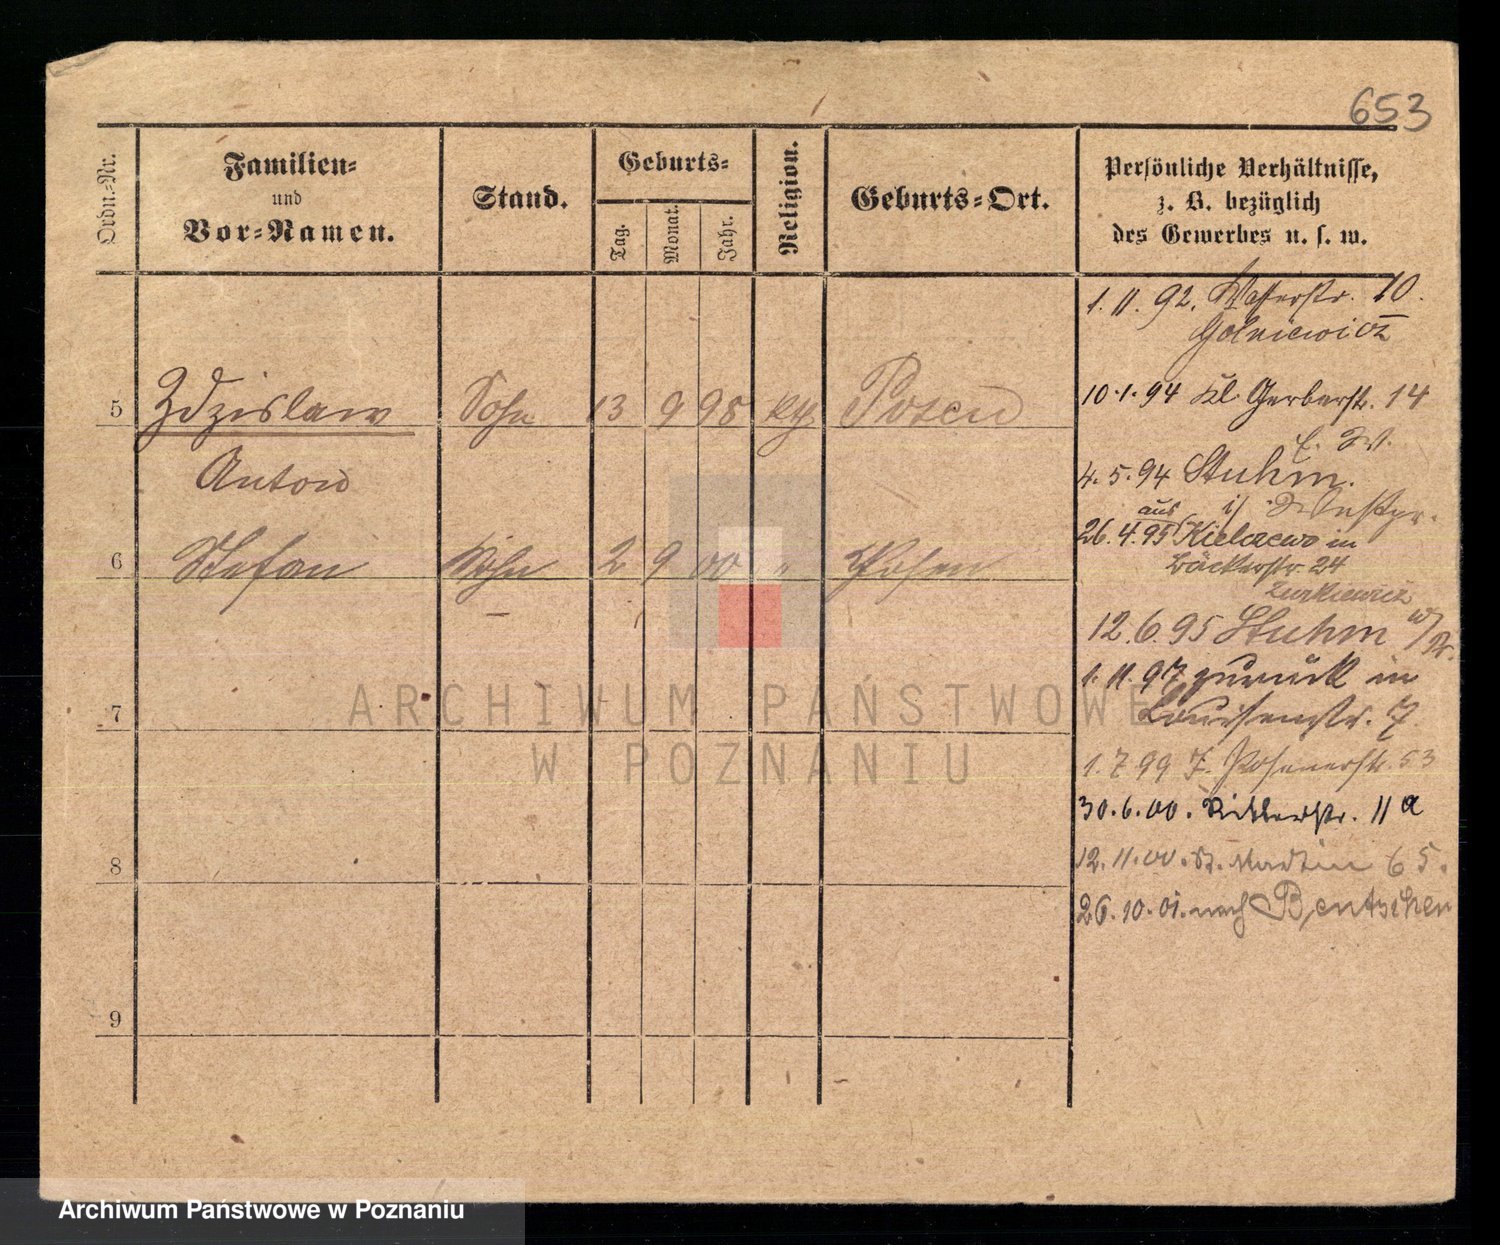 653
Ordn.-Nr.
Familien-
und
Vor-Namen.
Stand.
Geburts-
Tag.
Monat.
Jahr.
Religion.
Geburts-Ort.
Persönliche Verhältnisse,
z. B. bezüglich
des Gewerbes u. s. w.
5 Zdzislaw Sohn 13 9 98 Posen
Anton
6 Stefan Sohn 2 9 00 " Posen
7
8
9
1. 11. 92. Wasserstr. 10.
10.1.94 Kl. Gerberstr. 14
4.5.94 Stuhm.
i/ Westpr.
aus
26.4.95 Kielczewo in
Bäckerstr. 24
12.6.95 Stuhm w/Pr.
1.11.97 zurück in
Louisenstr. 7.
1.7 99 Posenerstr. 53
30.6.00. Ritterstr. 11 a
12.11.00. St. Martin 65.
26.10.01. nach Bentschen
ARCHIWUM PAŃSTWOWE
W POZNANIU
Archiwum Państwowe w Poznaniu